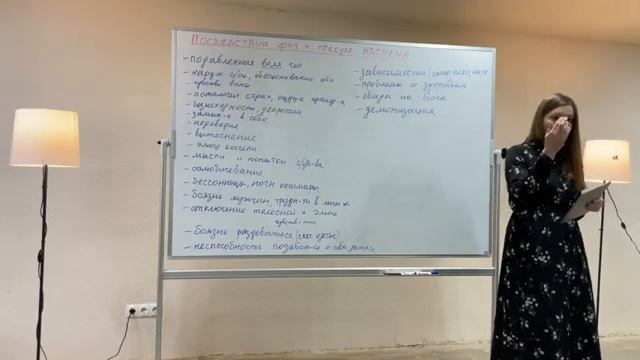 Последствия физ и сексуал насилия.
- подавленная воля чел
- наруш с/оц, обесценивание
чувство вины
- потология страх, ощущ
- безысходность, депрессия
- замык-е в себе
- неверие
- вытеснение
- эмоц качели
- мысли и попытки с/уб-ва
- самобичевание
- бессонница, ночн кошмары
- боязнь мужчин, трудн-ти в
- отключение телесной и эмоц
чувств-ти
- боязнь раздеваться
- неспособность позабот-ся о себе, детях
- зависимости
- проблемы со здоровьем
- обида на Бога
- демонизация